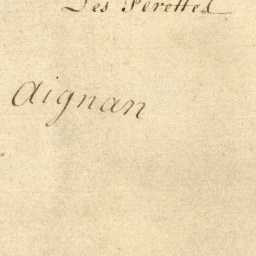 Les Perettes
aignan